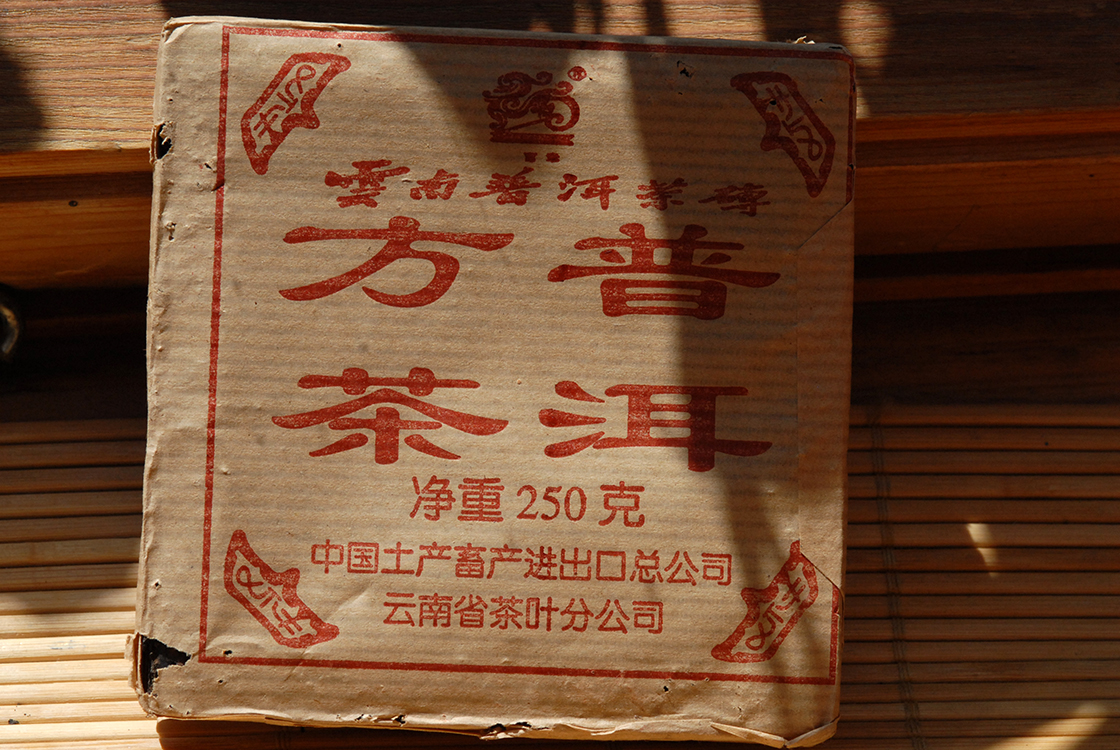 ®
雲南普洱茶磚
普洱
方茶
净重 250 克
中国土产畜产进出口总公司
云南省茶叶分公司